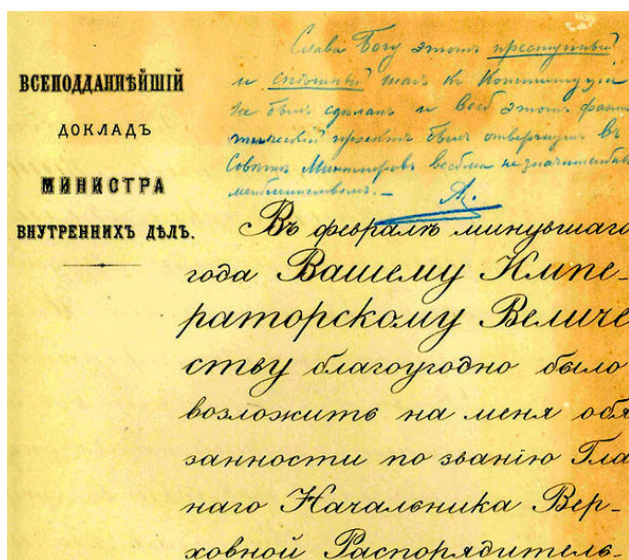 ВСЕПОДДАННѢЙШІЙ
ДОКЛАДЪ
МИНИСТРА
ВНУТРЕННИХЪ ДѢЛЪ.
Слава Богу этотъ преступный
и спѣшный шагъ къ Конституціи
не былъ сдѣланъ и весь этотъ фанта
стическій проектъ былъ отвергнутъ въ
Совѣтѣ Министровъ весьма незначительнымъ
меньшинствомъ. —
А.
Въ февралѣ минувшаго
года Вашему Импе-
раторскому Величе
ству благоугодно было
возложить на меня обя
занности по званію Гла
наго Начальника Вер-
ховной Распорядитель-